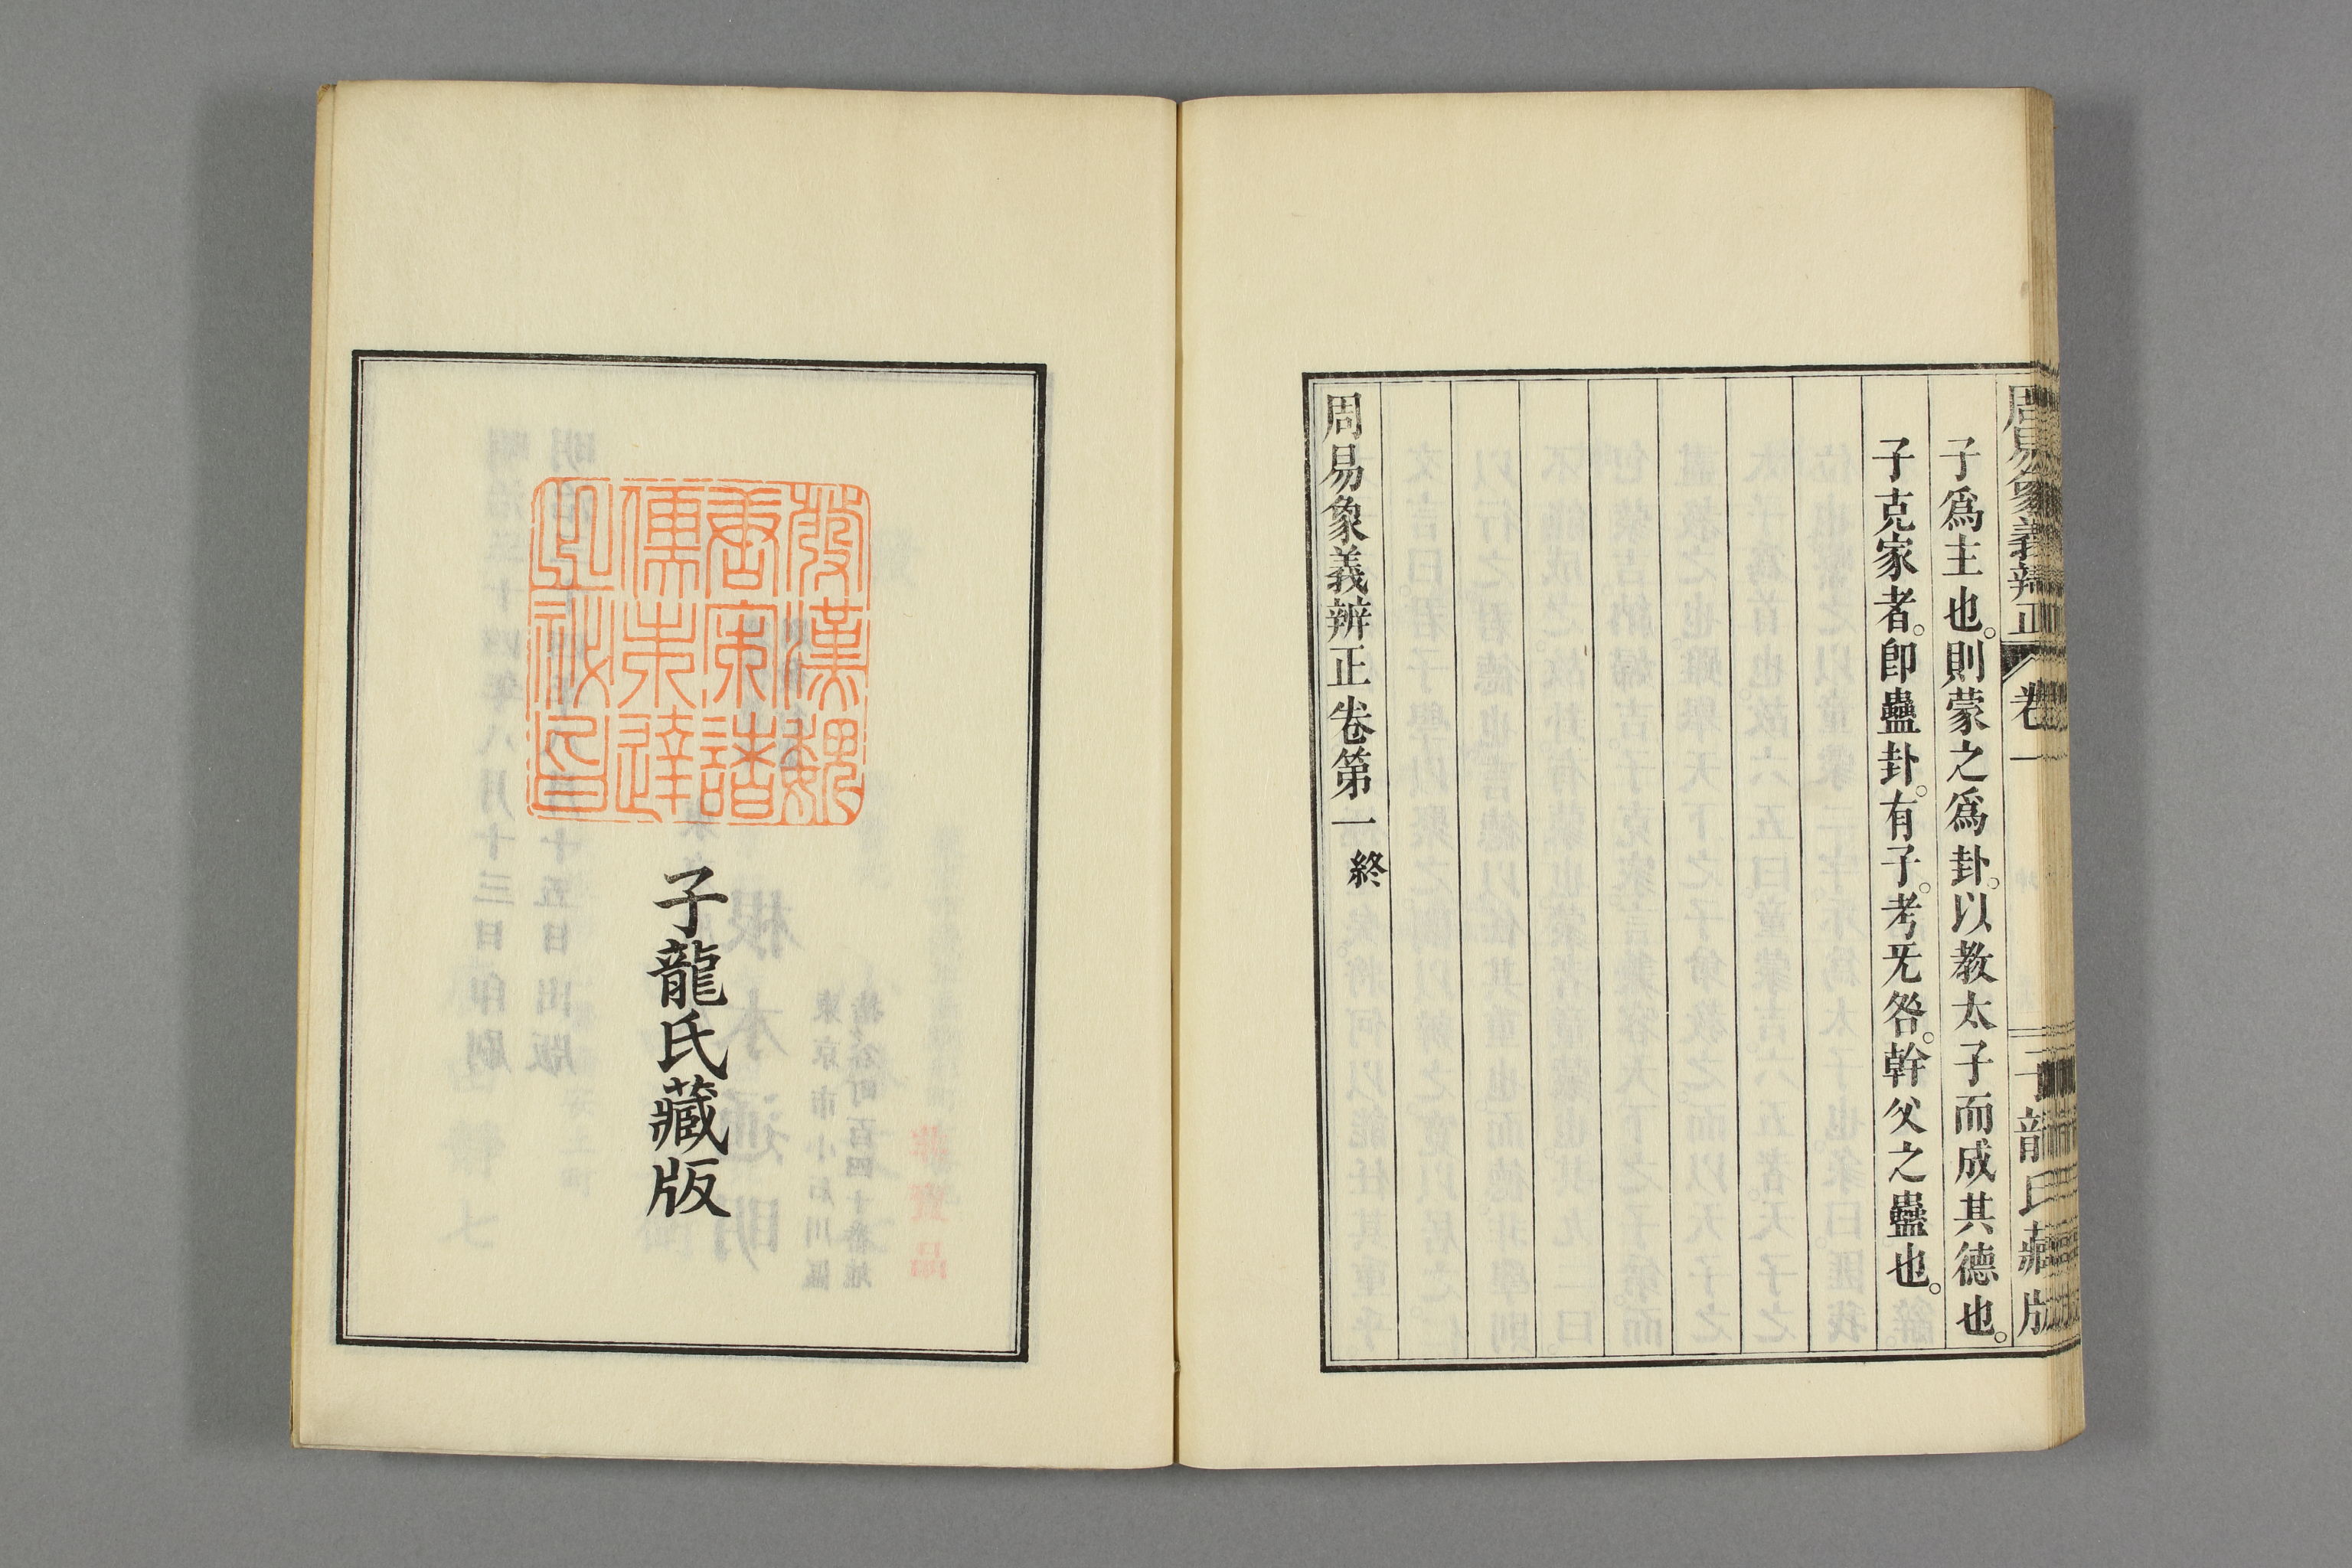 周易象義辨正 卷一 子龍氏藏版
子爲主也。則蒙之爲卦。以教太子而成其德也。
子克家者。卽蠱卦。有子。考旡咎。幹父之蠱也。
周易象義辨正卷第一終
發漢魏
唐宋諸
儒未達
之祕旨
子龍氏藏版